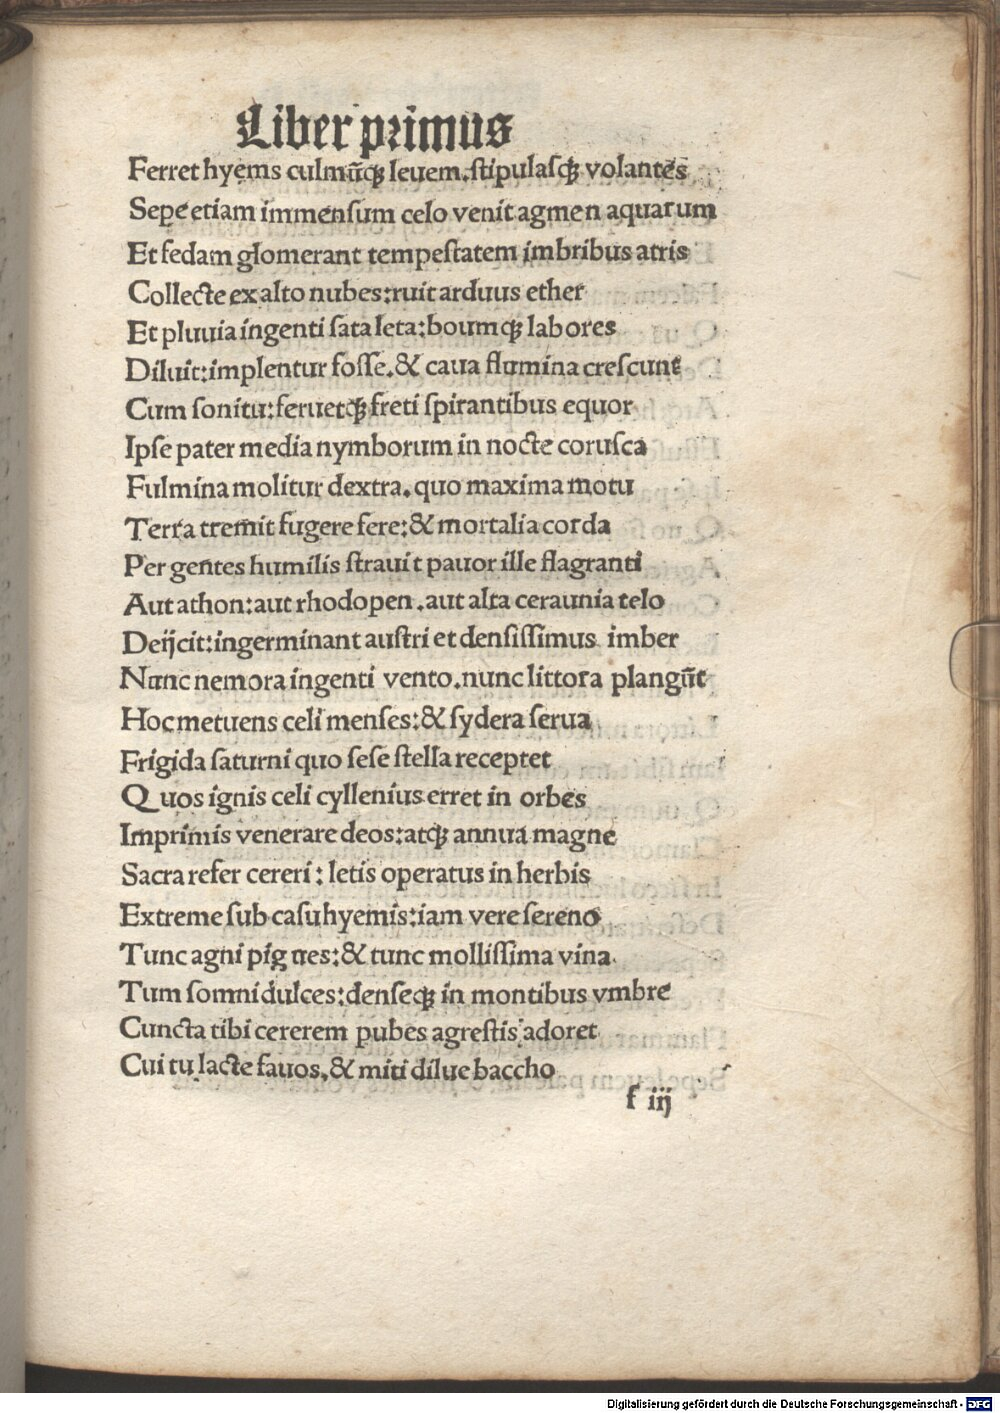 Liber primus
Ferret hyems culmūqꝫ leuem.stipulasqꝫ volantes
Sepe etiam immensum celo venit agmen aquarum
Et fedam glomerant tempestatem imbribus atris
Collecte ex alto nubes:ruit arduus ether
Et pluuia ingenti sata leta:boumqꝫ labores
Diluit:implentur fosse.& caua flumina crescunt
Cum sonitu:feruetqꝫ freti spirantibus equor
Ipse pater media nymborum in nocte corusca
Fulmina molitur dextra.quo maxima motu
Terra tremit fugere fere:& mortalia corda
Per gentes humilis strauit pauor ille flagranti
Aut athon:aut rhodopen.aut alta ceraunia telo
Deijcit:ingerminant austri et densissimus imber
Nunc nemora ingenti vento.nunc littora plangūt
Hoc metuens celi menses:& sydera serua
Frigida saturni quo sese stella receptet
Quos ignis celi cyllenius erret in orbes
Imprimis venerare deos:atqꝫ annua magne
Sacra refer cereri: letis operatus in herbis
Extreme sub casu hyemis:iam vere sereno
Tunc agni pigues:& tunc mollissima vina
Tum somni dulces:denseqꝫ in montibus vmbre
Cuncta tibi cererem pubes agrestis adoret
Cui tu lacte fauos,& miti dilue baccho
f iij
Digitalisierung gefördert durch die Deutsche Forschungsgemeinschaft - DFG